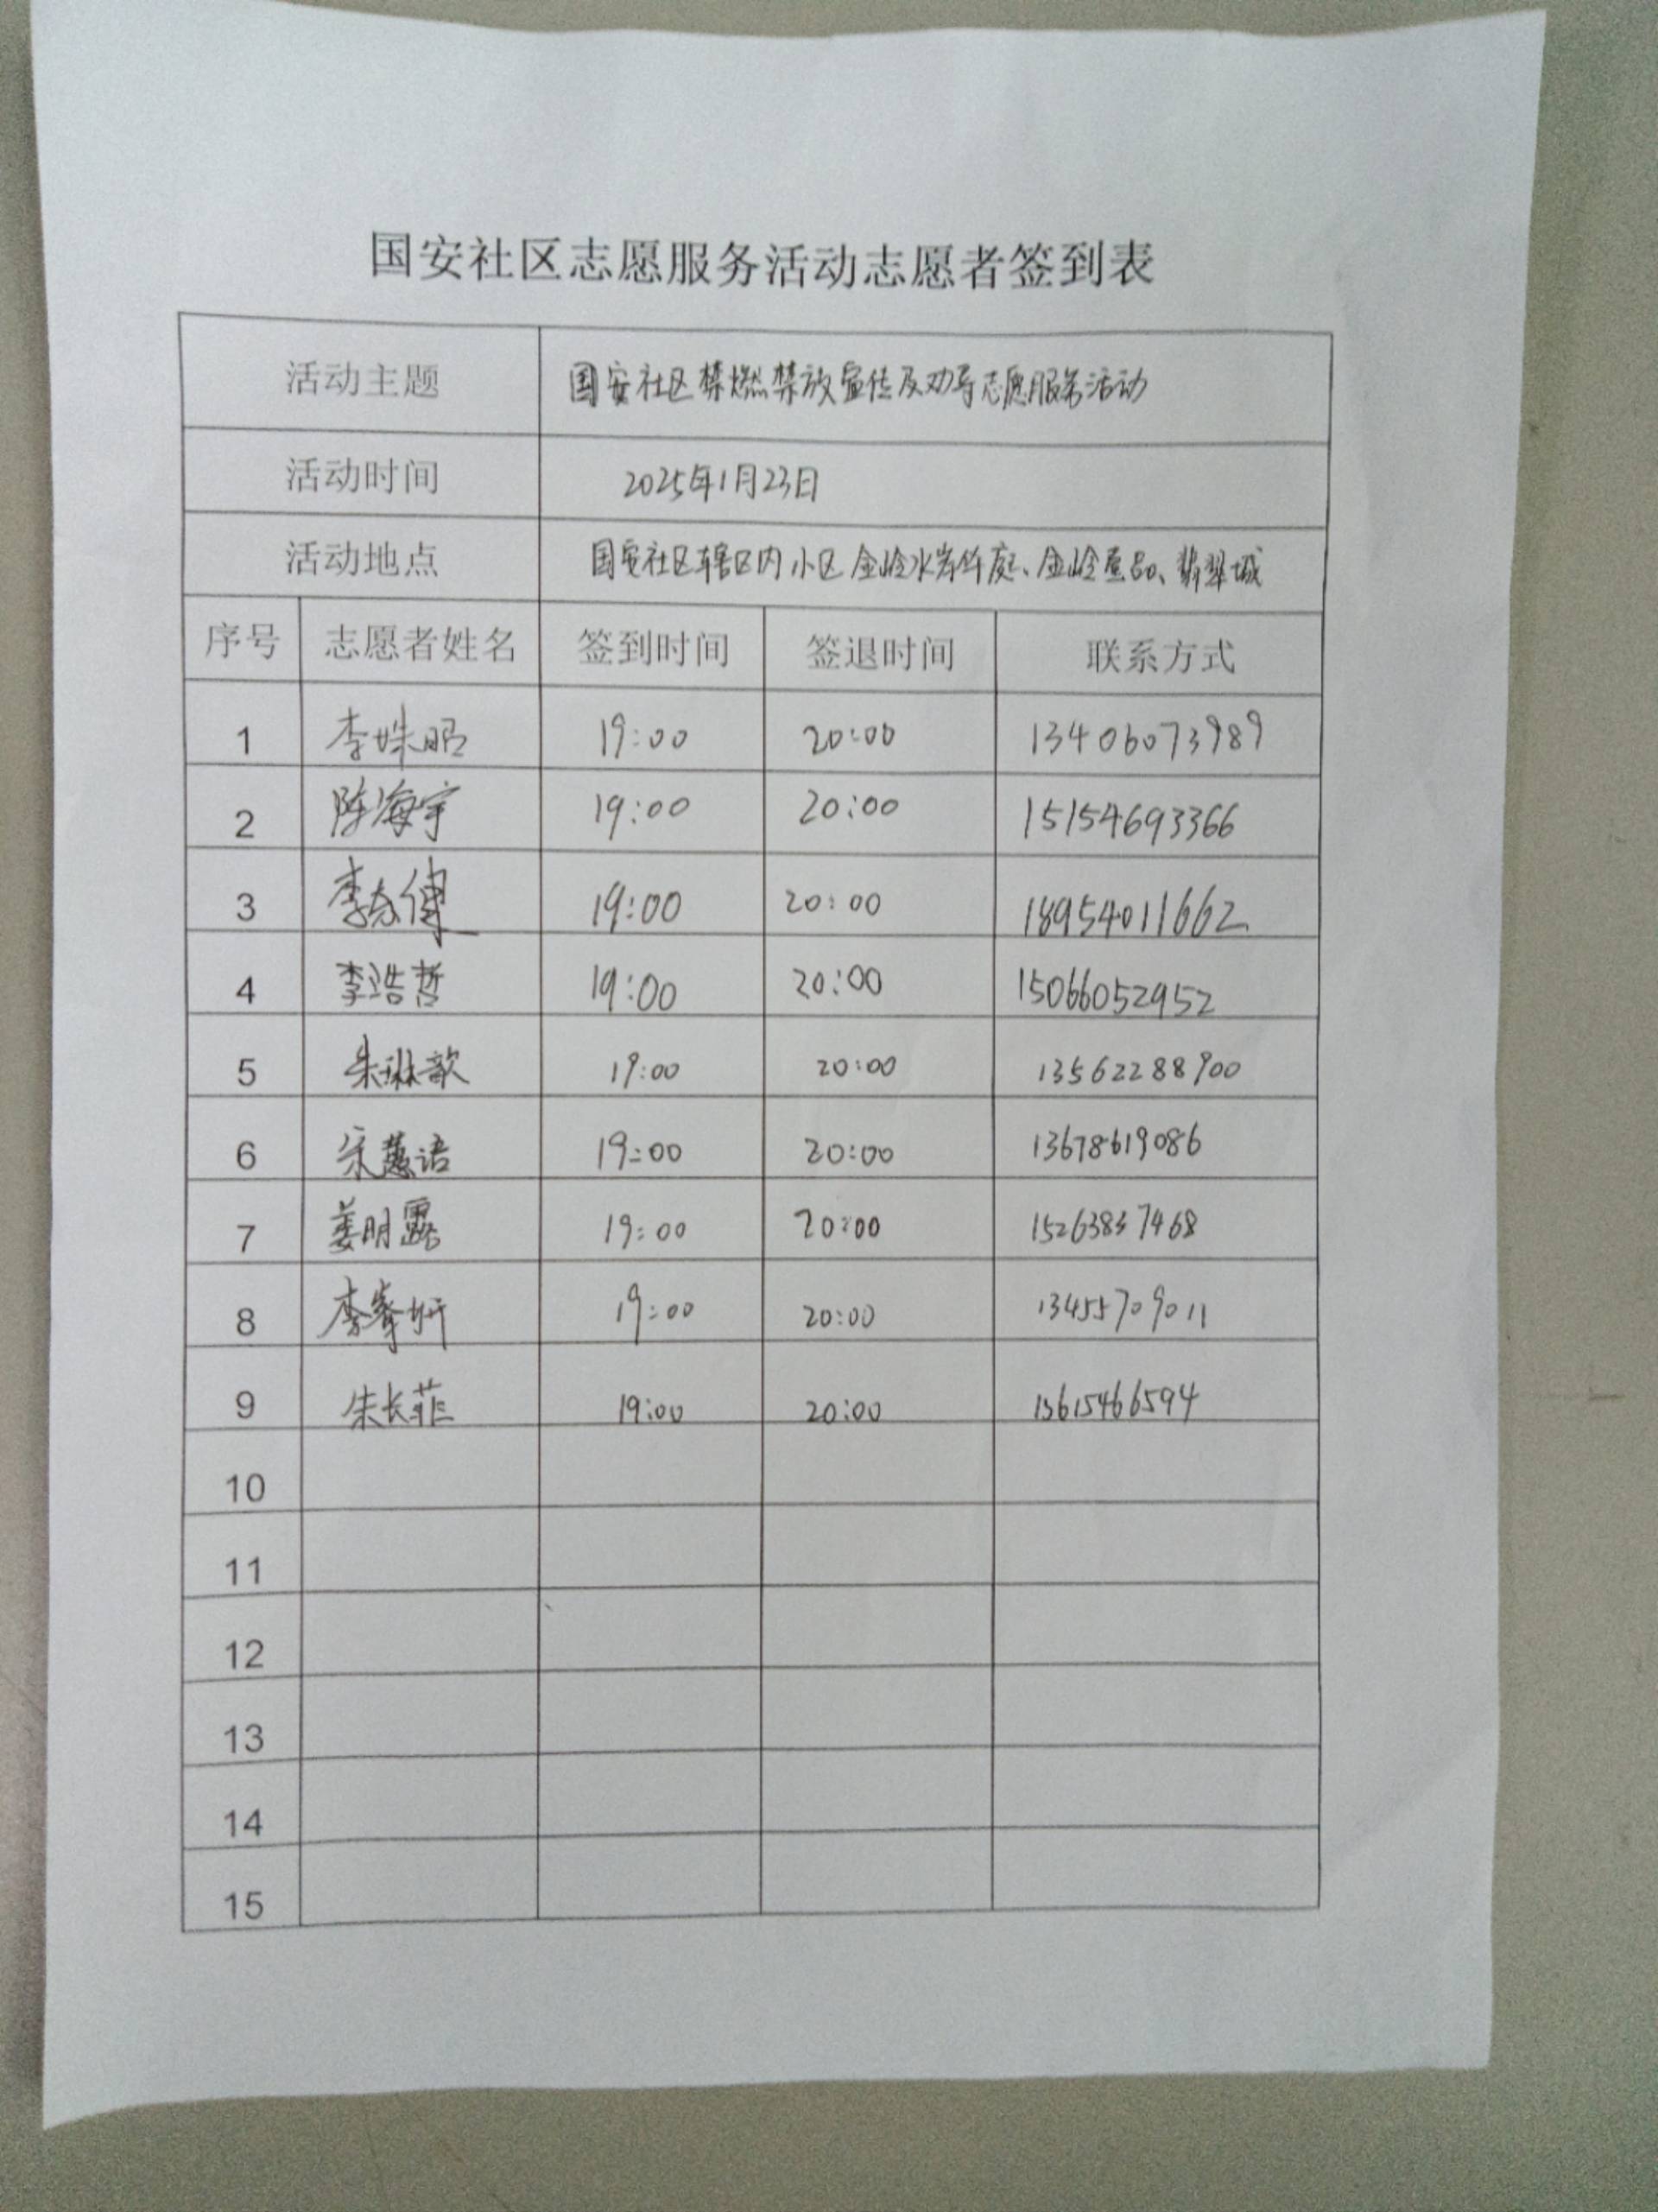 国安社区志愿服务活动志愿者签到表
活动主题 国安社区禁燃禁放宣传及劝导志愿服务活动
活动时间 2025年1月23日
活动地点 国安社区辖区内小区金岭水岸华庭、金岭壹品、翡翠城
序号 志愿者姓名 签到时间 签退时间 联系方式
1 李姝昭 19:00 20:00 13406073989
2 陈海宇 19:00 20:00 15154693366
3 19:00 20:00 18954011662
4 李浩哲 19:00 20:00 15066052952
5 朱琳歆 19:00 20:00 13562288900
6 宋蕙语 19:00 20:00 13678619086
7 姜明露 19:00 20:00 15263837468
8 19:00 20:00 13455709011
9 朱长菲 19:00 20:00 13615466594
10
11
12
13
14
15